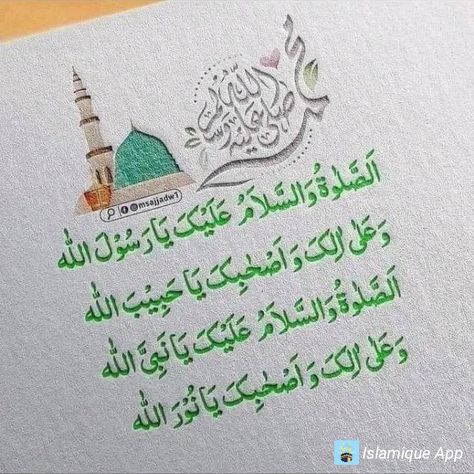 محمد صلى الله عليه وسلم
@msajjadw1
اَلصَّلٰوةُ وَالسَّلَامُ عَلَیْکَ یَا رَسُوْلَ اللّٰه
وَعَلٰی اٰلِکَ وَ اَصْحٰبِکَ یَا حَبِیْبَ اللّٰه
اَلصَّلٰوةُ وَالسَّلَامُ عَلَیْکَ یَا نَبِیَّ اللّٰه
وَعَلٰی اٰلِکَ وَ اَصْحٰبِکَ یَا نُوْرَ اللّٰه
Islamique App